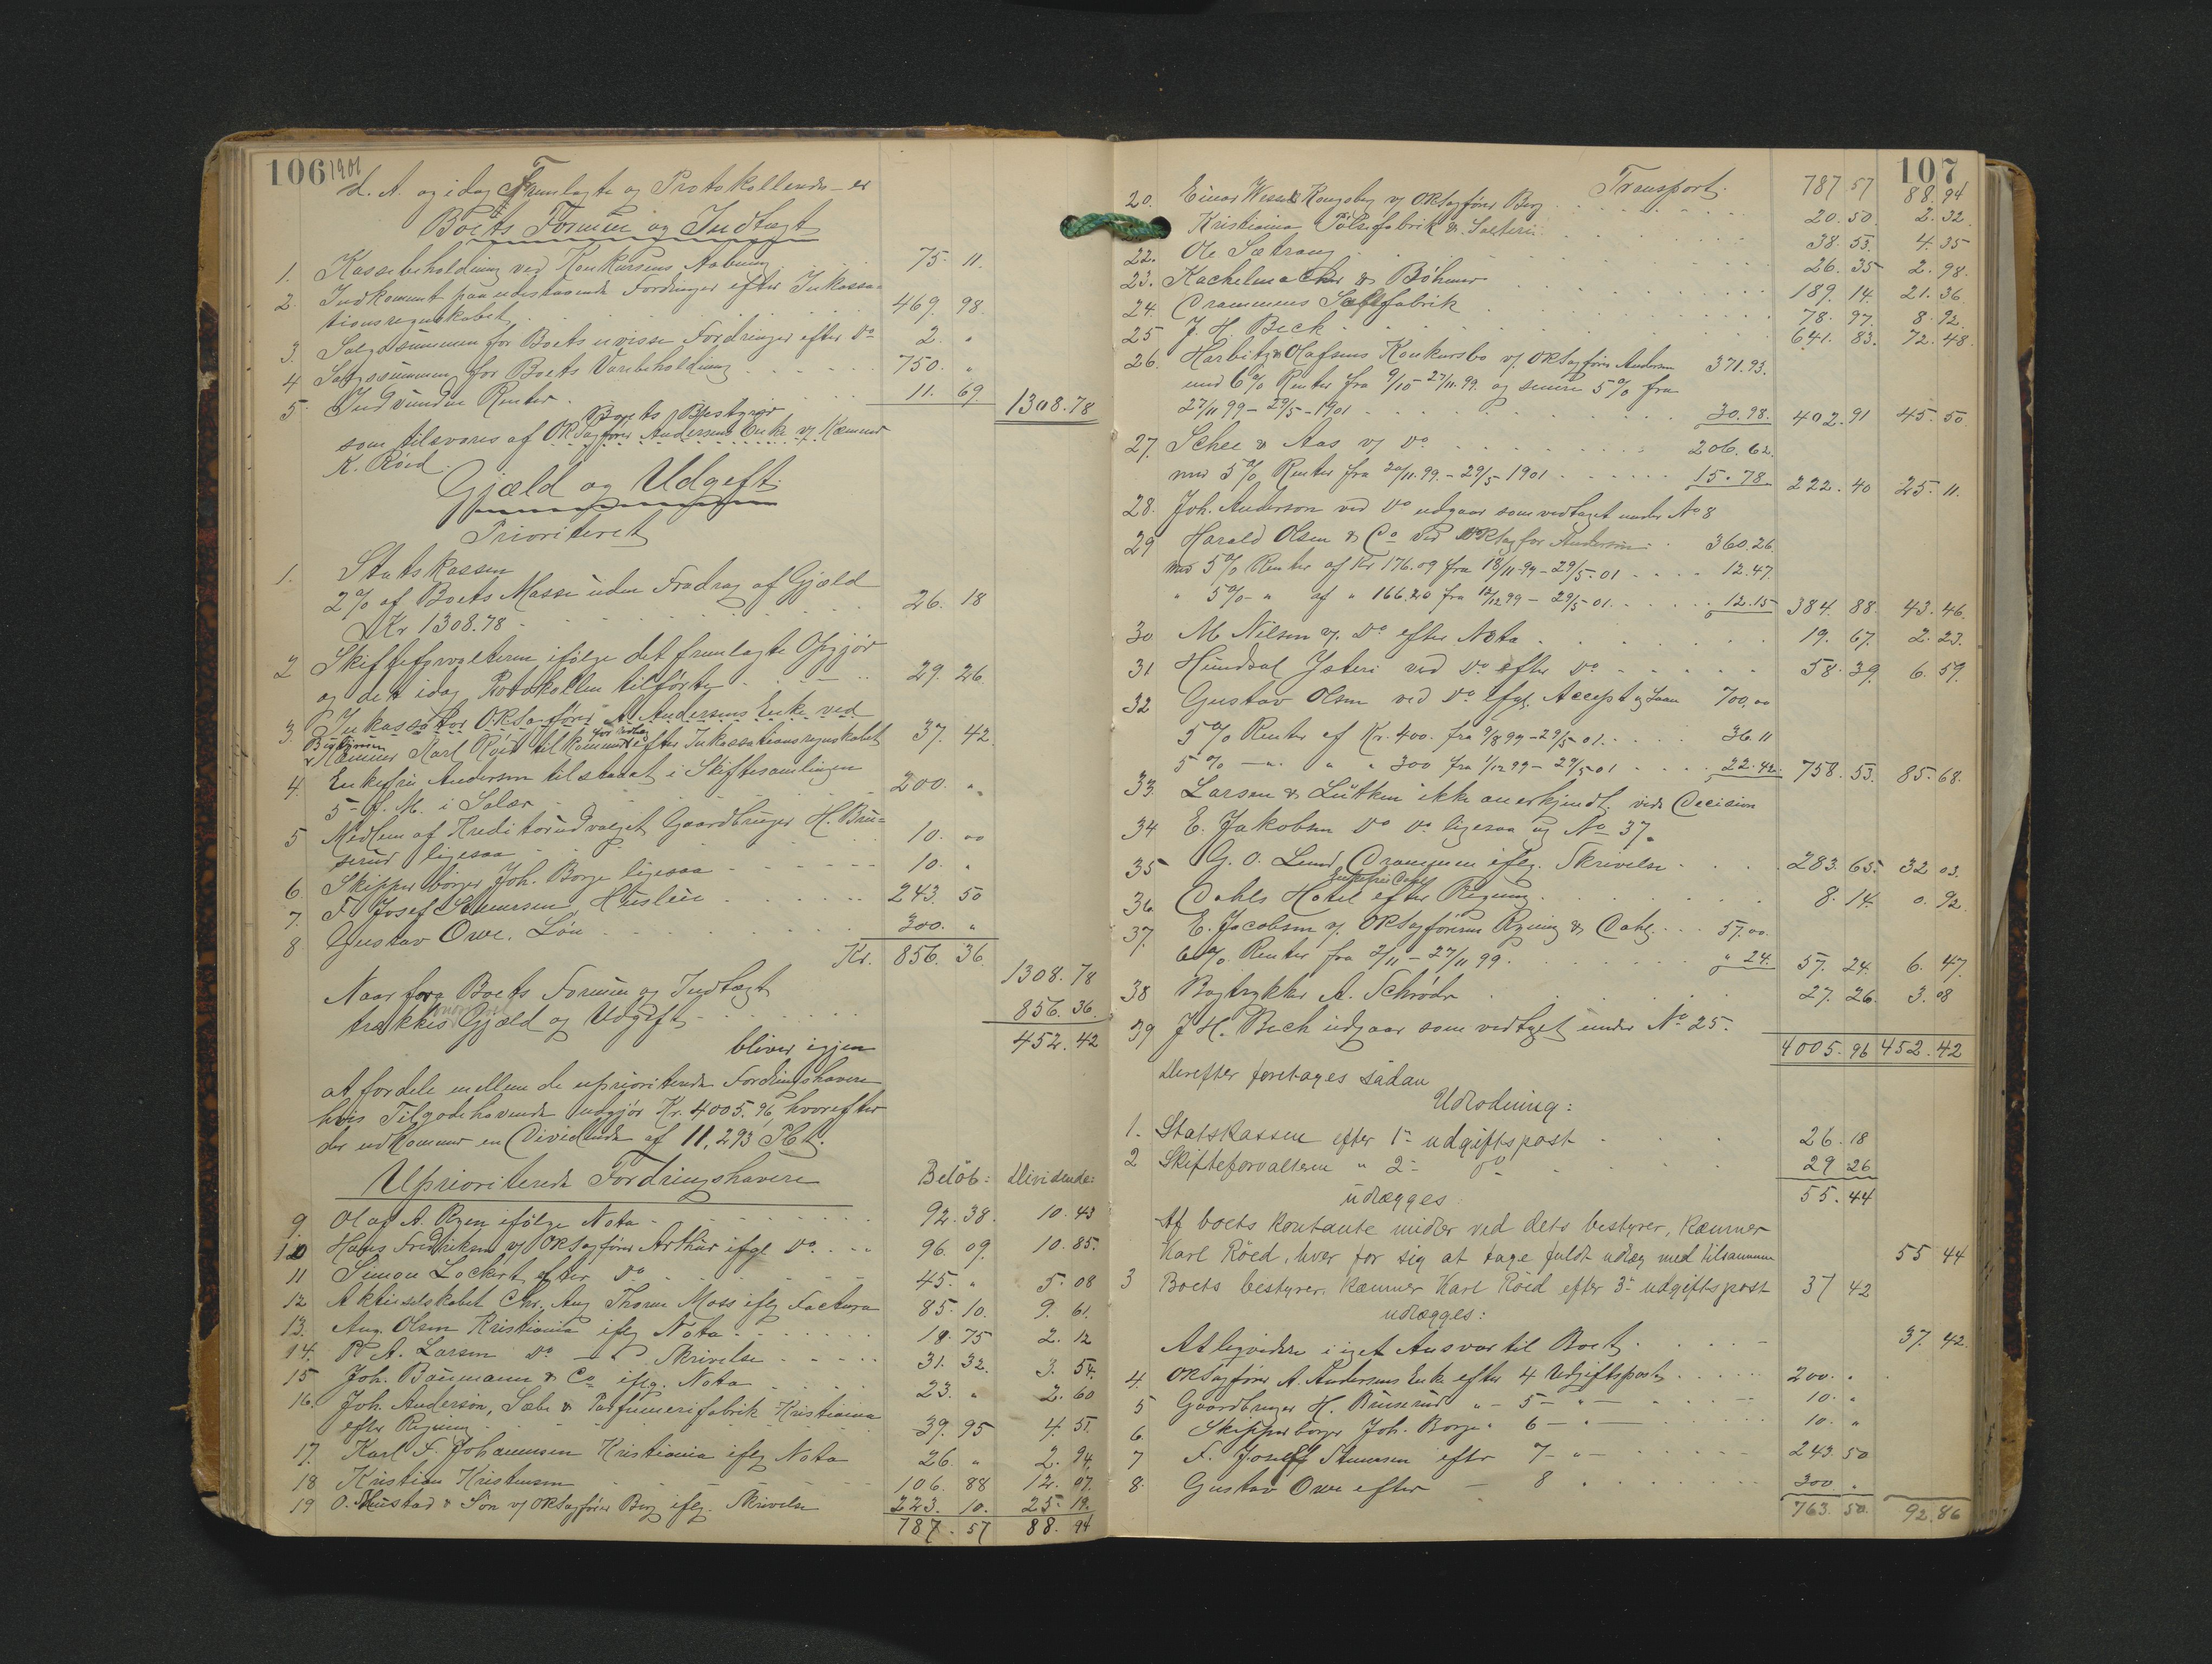 106 1901
d. A. og idag Fremlagte og Protokollerede - er
Boets Formue og Indtægt
1. Kassebeholdning ved Konkursens Aabning . . 75. 11.
2. Indkommet paa udestaaende Fordringer efter Inkassa-
tionsregnskabet . . . 469. 98.
3. Salgssummen for Boets uvisse Fordringer efter Do 2. "
4 Salgssummen for Boets Varebeholdning . . . 750. "
5 Indvundne Renter . . . 11. 69 1308.78
som tilsvares af Boets Bestyrer OKSagfører Andersens Enke v/ Kæmner
K. Röed.
Gjæld og Udgift.
Prioriteret
1. Statskassen
2% af Boets Masse uden Fradrag af Gjæld
Kr 1308.78 - . . . 26. 18
2 Skifteforvalteren ifølge det fremlagte Opgjør
og det idag Protokollen tilførte . . . 29. 26.
3. Inkassator OKSagfører A. Andersens Enke ved
Bestyreren
Kæmner Karl Röed tilkommer efter Inkassationsregnskabet 37. 42.
4. Enkefru Andersen tilstaaet i Skiftesamlingen
5- d. M. i Salær . . . 200. "
5 Medlem af Kreditorudvalget Gaardbruger H. Bru-
serud ligesaa . . . 10. 00
6 Skipperborger Joh. Borge ligesaa . . . 10. "
7. F. Josef Simensen, Husleie . . . 243. 50
8 Gustav Owe. Løn . . . 300. "
Kr. 856. 36.
Naar fra Boets Formue og Indtægt 1308. 78
trækkes Gjæld og Udgift . . . 856. 36.
bliver igjen 452. 42
at fordele mellem de uprioriterede Fordringshavere
hvis Tilgodehavende udgjør Kr. 4005.96, hvorefter
der udkommer en Dividende af 11,293 Pct.
Uprioriterede Fordringshavere Beløb: Dividende:
9. Olaf A. Ryen ifølge Nota . . . 92. 38. 10. 43
10 Hans Fredriksen v/ OKSagfører Arthur ifgl. Do . . . 96. 09. 10. 85.
11 Simon Lockert efter Do 45. " 5. 08
12 Aktieselskabet Chr. Aug. Thorne Moss iflg Factura 85. 10. 9. 61.
13. Aug. Olsen Kristiania iflg Nota . . . 18. 75 2. 12
14. P. A. Larsen Do — Skrivelse . . . 31. 32. 3. 54.
15 Joh. Baumann & Co iflg. Nota 23. " 2. 60
16. Joh. Anderson, Sæbe & Parfumerifabrik Kristiania
efter Regning . . . 39. 95 4. 51.
17. Karl F. Johannesen Kristiania iflg Nota 26. " 2. 94.
18 Kristian Kristensen 106. 88 12. 07.
19 O. Mustad & Søn v/ OKSagfører Berg iflg. Skrivelse 223. 10. 25. 19.
787. 57 88. 94
107
Transport. 787 57 88. 94
20. Einar Wessel Kongsberg v/ OKSagfører Berg . . . 20. 50 2. 32.
Kristiania Pölsefabrik & Salteri . . . 38. 53. 4. 35
22. Ole Sætrang . . . 26. 35 2. 98.
23. Kachelmacher & Bøhmer . . . 189. 14. 21. 36.
24. Drammens Saftfabrik . . . 78. 97. 8. 92.
25 J. H. Beck . . . 641. 83. 72. 48.
26. Harbitz & Olafsens Konkursbo v/ OKSagfører Andersen 371.93.
med 6% Renter fra 9/10 - 27/11 99. og senere 5% fra
27/11 99 - 29/5 - 1901 . . . 30.98. 402.91 45. 50
27. Schee & Aas v/ Do . . . 206. 62.
med 5% Renter fra 20/11. 99. - 29/5 - 1901 . . . 15. 78. 222. 40 25. 11.
28. Joh. Anderson ved Do udgaar som vedtaget under No 8
29 Harald Olsen & Co ved OKSagfør Andersen . 360.26.
med 5% Renter af Kr 176.09 fra 18/11 99 - 29/5 - 01 . . . 12.47.
" 5% - " af " 166.20 fra 12/12 99 - 29/5 01 . . . 12.15 384. 88. 43. 46.
30 M. Nilsen v/ Do efter Nota . . . 19. 67. 2. 23.
31 Hundsal Ysteri ved Do efter Do . . . 58. 39. 6. 59.
32 Gustav Olsen ved Do ifgl. Accept og Laan 700. 00
5% Renter af Kr. 400. fra 9/8 99 - 29/5 01. . . . 36. 11
5% — " " " 300 fra 1/12 99 - 29/5 01 . . . 22.42. 758. 53. 85. 68.
33. Larsen & Lütken ikke anerkjendt, vide Decision
34 E. Jakobsen Do Do ligesaa og No 37.
35 G. O. Lund, Drammen iflg. Skrivelse . . . 283. 65. 32 03.
36 Dahls Hotel Enkefru Dahl efter Regning . . . 8. 14. 0. 92.
37. E. Jacobsen v/ OKSagførerne Ryning & Dahl . . 57. 00.
6% Renter fra 2/11 - 27/11 99. . . . " 24. 57. 24. 6. 47.
38 Bogtrykker A. Schrøder . . . 27. 26. 3. 08
39 J. H. Bech udgaar som vedtaget under No 25.
4005. 96 452. 42
Derefter foretages sådan
Udlodning:
1. Statskassen efter 1- udgiftspost . . . 26. 18
2 Skifteforvalteren " 2- Do . . . 29 26
udlægges: 55. 44
Af boets kontante midler ved dets bestyrer, Kæmner
Karl Röed, hver for sig at tage fuldt udlæg med tilsammen 55 44
3 Boets bestyrer, Kæmner Karl Röed efter 3- udgiftspost 37 42
udlægges:
At liqvidere i eget Ansvar til Boet . . . 37. 42.
4. OKSagfører A. Andersens Enke efter 4 Udgiftspost . . . 200. "
5 Gaardbruger H. Bruserud " - 5 - " - . . . 10. "
6. Skipperborger Joh. Borge " 6 - " - . . . 10. "
7 F. Josef Simensen efter 7 - " - . . . 243 50
8. Gustav Owe efter — 8 . . . 300 .
763. 50. 92. 86